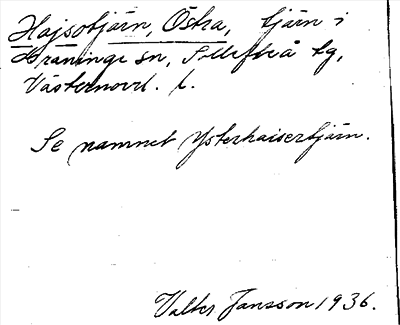 Hajsotjärn, Östra, tjärn i
Hräninge sn, Sollefteå tg,
Västernorrl. l.
Se namnet Ysterhaisertjärn.
Valter Jansson 1936.